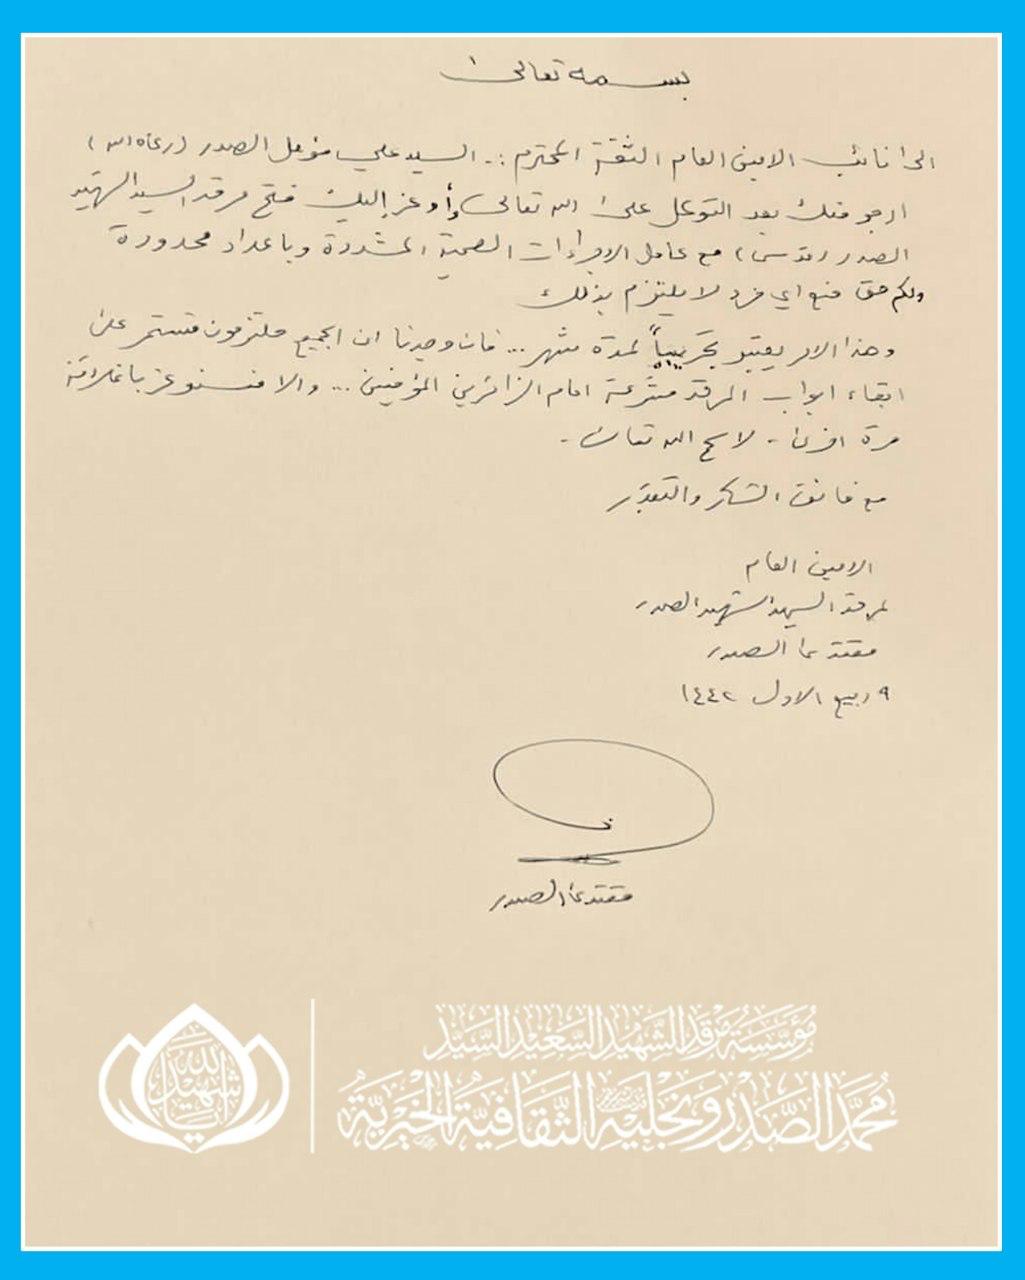 بسمه تعالى
الى نائب الامين العام الثقة المحترم :. السيد علي مؤمل الصدر (رعاه الله)
ارجو منك بعد التوكل على الله تعالى وأوعز إليك فتح مرقد السيد الشهيد
الصدر (قدس) مع كامل الاجراءات الصحية المشددة وباعداد محدودة
ولكم حق منع اي فرد لا يلتزم بذلك
وهذا الامر يعتبر تجريبياً لمدة شهر ... فان وجدنا ان الجميع ملتزمون فنستمر على
ابقاء ابواب المرقد مشرعة امام الزائرين المؤمنين ... والا فسنوعز باغلاقه
مرة اخرى - لا سمح الله تعالى -
مع فائق الشكر والتقدير
الامين العام
لمرقد السيد الشهيد الصدر
مقتدى الصدر
٩ ربيع الاول ١٤٤٢
مقتدى الصدر
مؤسسة مرقد الشهيد السعيد السيد
محمد الصدر ونجليه الثقافية الخيرية